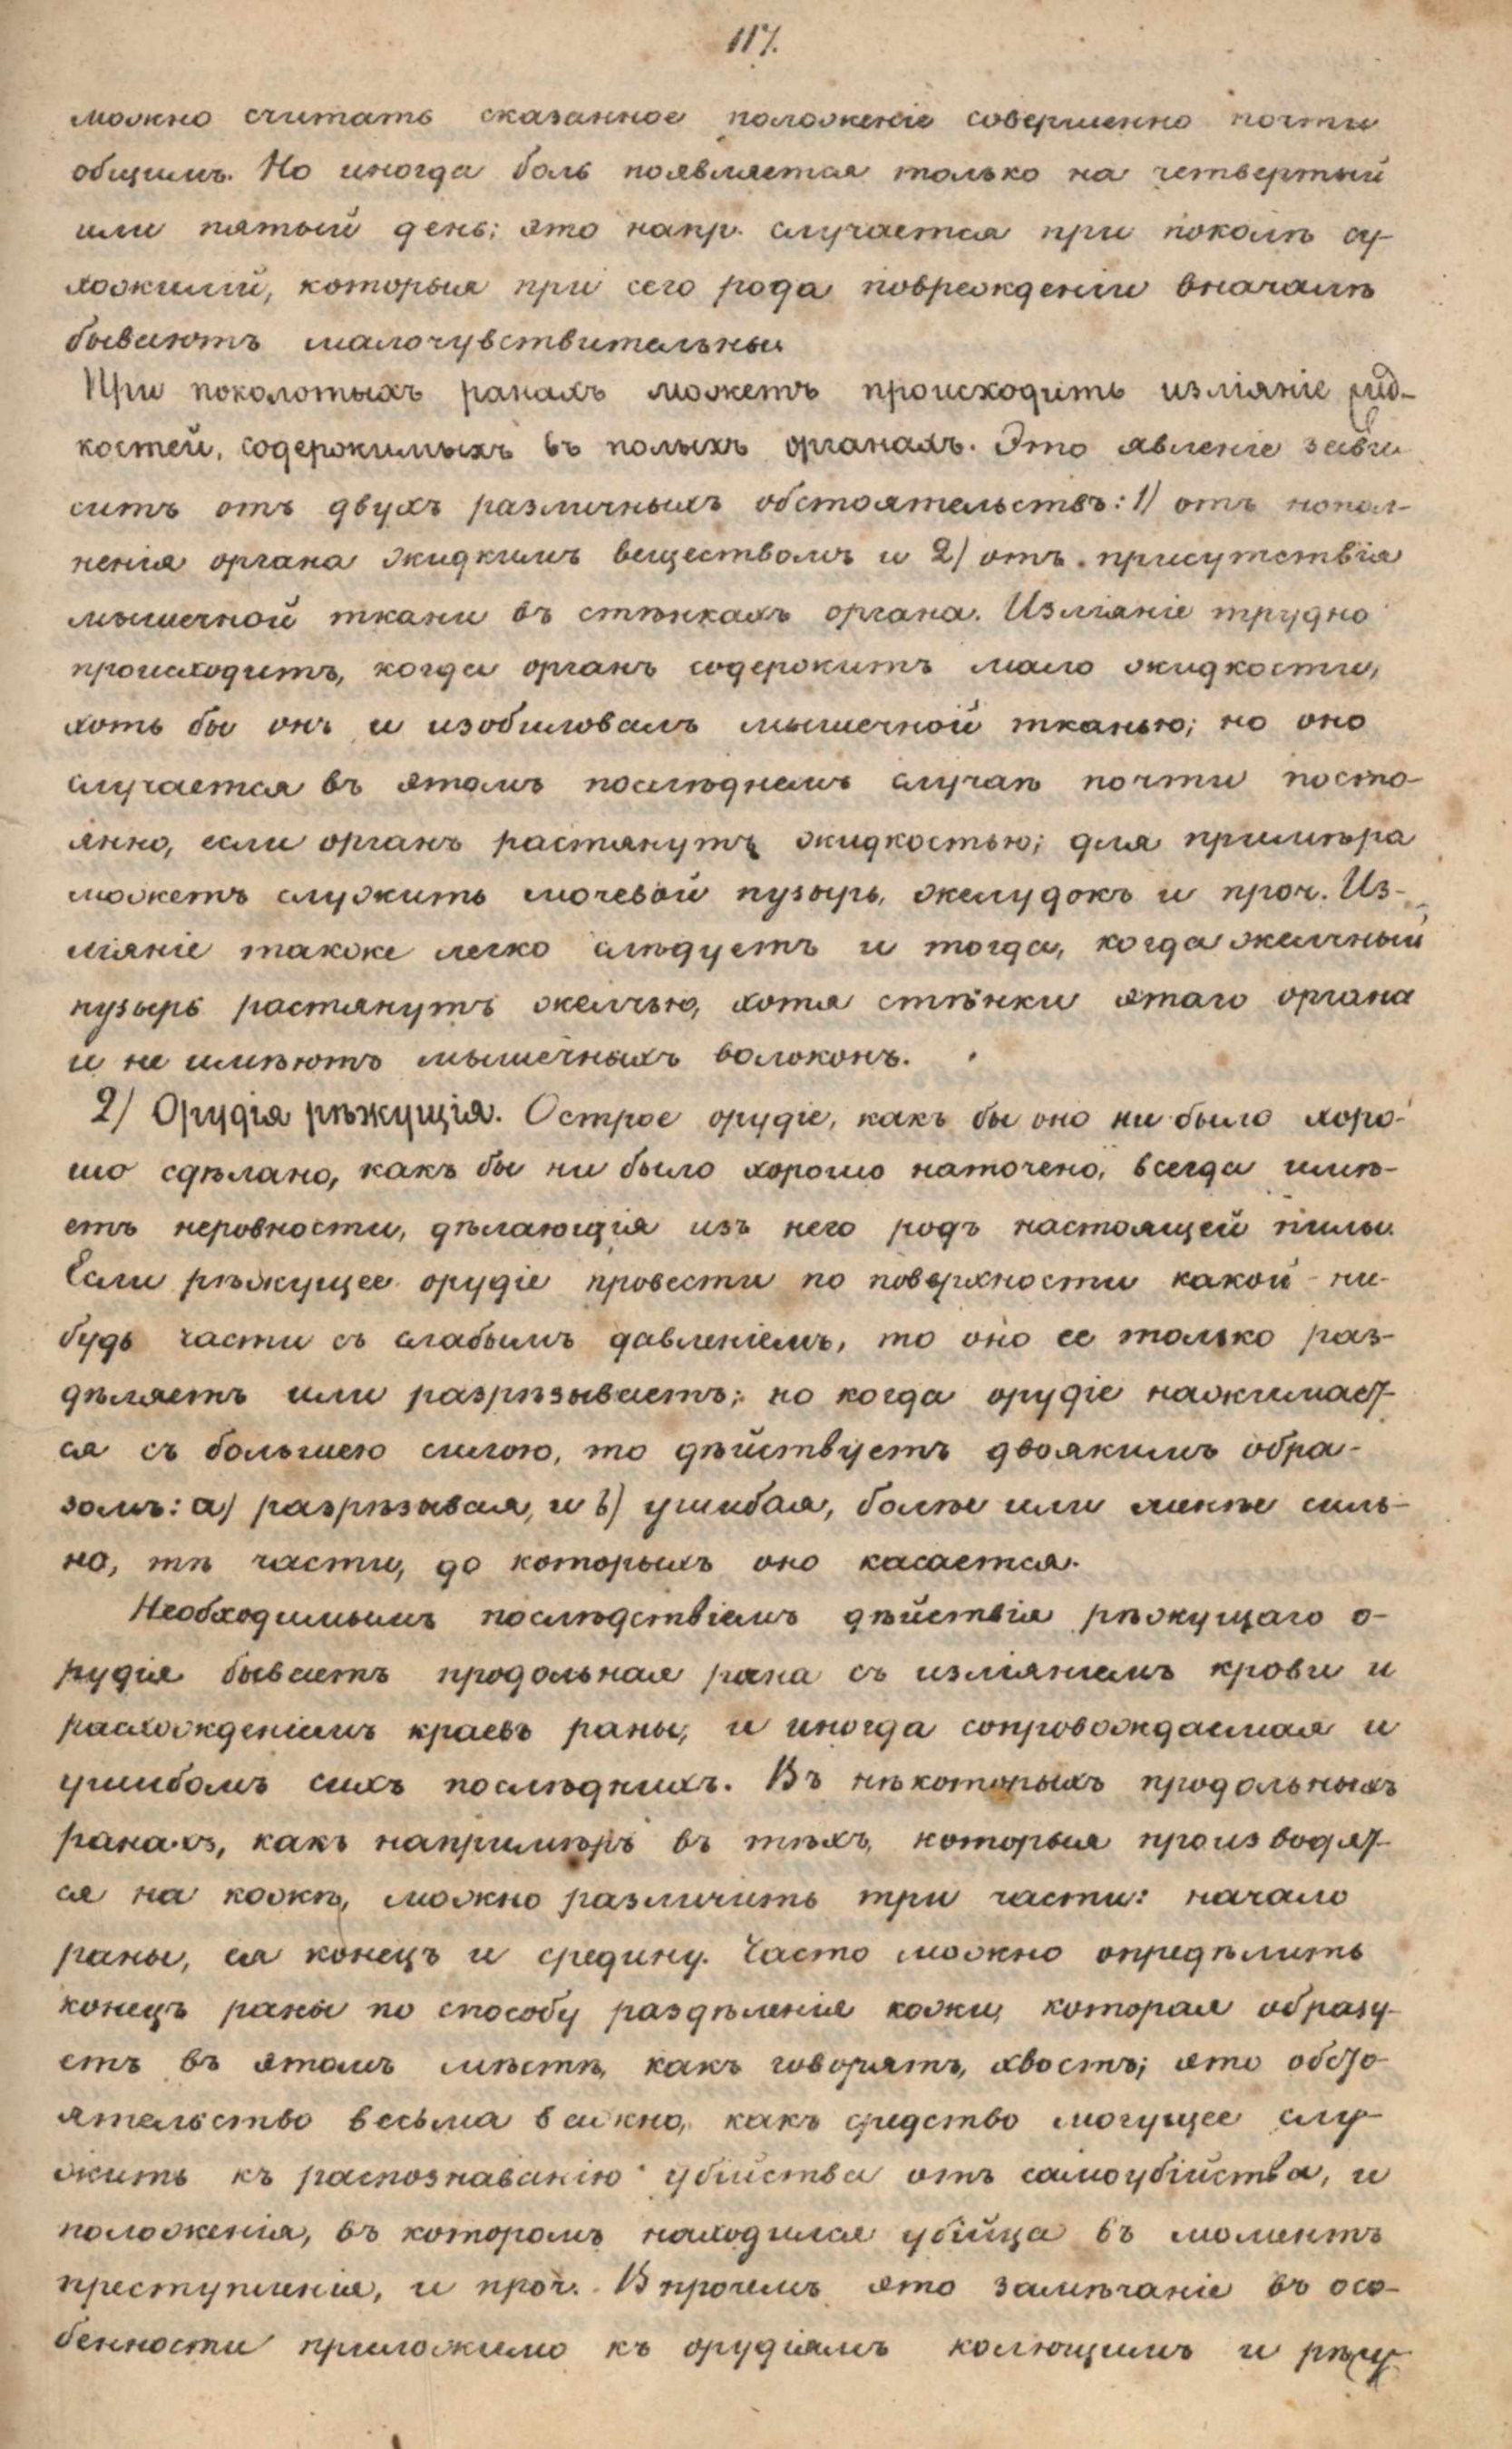 117.
можно считать сказанное положеніе совершенно почти
общимъ. Но иногда боль появляется только на четвертый
или пятый день; это напр. случается при поколѣ су-
хожилій, которыя при сего рода поврежденіи вначалѣ
бываютъ малочувствительны
При поколотыхъ ранахъ можетъ происходить изліяніе жид-
костей, содержимыхъ въ полыхъ органахъ. Это явленіе зави
ситъ отъ двухъ различныхъ обстоятельствъ: 1) отъ напол-
ненія органа жидкимъ веществомъ и 2) отъ присутствія
мышечной ткани въ стѣнкахъ органа. Изліяніе трудно
происходитъ, когда органъ содержитъ мало жидкости,
хоть бы онъ и изобиловалъ мышечной тканью; но оно
случается въ этомъ послѣднемъ случаѣ почти посто-
янно, если органъ растянутъ жидкостью; для примѣра
можетъ служить мочевой пузырь, желудокъ и проч. Из-
ліяніе также легко слѣдуетъ и тогда, когда желчный
пузырь растянутъ желчью, хотя стѣнки этаго органа
и не имѣютъ мышечныхъ волоконъ.
2) Орудія рѣжущія. Острое орудіе, какъ бы оно ни было хоро-
шо сдѣлано, какъ бы ни было хорошо наточено, всегда имѣ-
етъ неровности, дѣлающія изъ него родъ настоящей пилы.
Если рѣжущее орудіе провести по поверхности какой-ни-
будь части съ слабымъ давленіемъ, то оно ее только раз-
дѣляетъ или разрѣзываетъ; но когда орудіе нажимает-
ся съ большею силою, то дѣйствуетъ двоякимъ обра-
зомъ: а) разрѣзывая, и b) ушибая, болѣе или менѣе силь-
но, тѣ части, до которыхъ оно касается.
Необходимымъ послѣдствіемъ дѣйствія рѣжущаго о-
рудія бываетъ продольная рана съ изліяніемъ крови и
расхожденіемъ краевъ раны, и иногда сопровождаемая и
ушибомъ сихъ послѣднихъ. Въ нѣкоторыхъ продольныхъ
ранахъ, какъ напримѣръ въ тѣхъ, которыя производят-
ся на кожѣ, можно различить три части: начало
раны, ея конецъ и средину. Часто можно опредѣлить
конецъ раны по способу раздѣленія кожи, которая образу-
етъ въ этомъ мѣстѣ, какъ говорятъ, хвостъ; это обсто-
ятельство весьма важно, какъ средство могущее слу-
жить къ распознаванію убійства отъ самоубійства, и
положенія, въ которомъ находился убійца въ моментъ
преступленія, и проч. Впрочемъ это замѣчаніе въ осо-
бенности приложимо къ орудіямъ колющимъ и